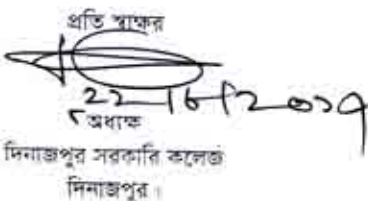 প্রতি স্বাক্ষর
22/6/2019
অধ্যক্ষ
দিনাজপুর সরকারি কলেজ
দিনাজপুর।